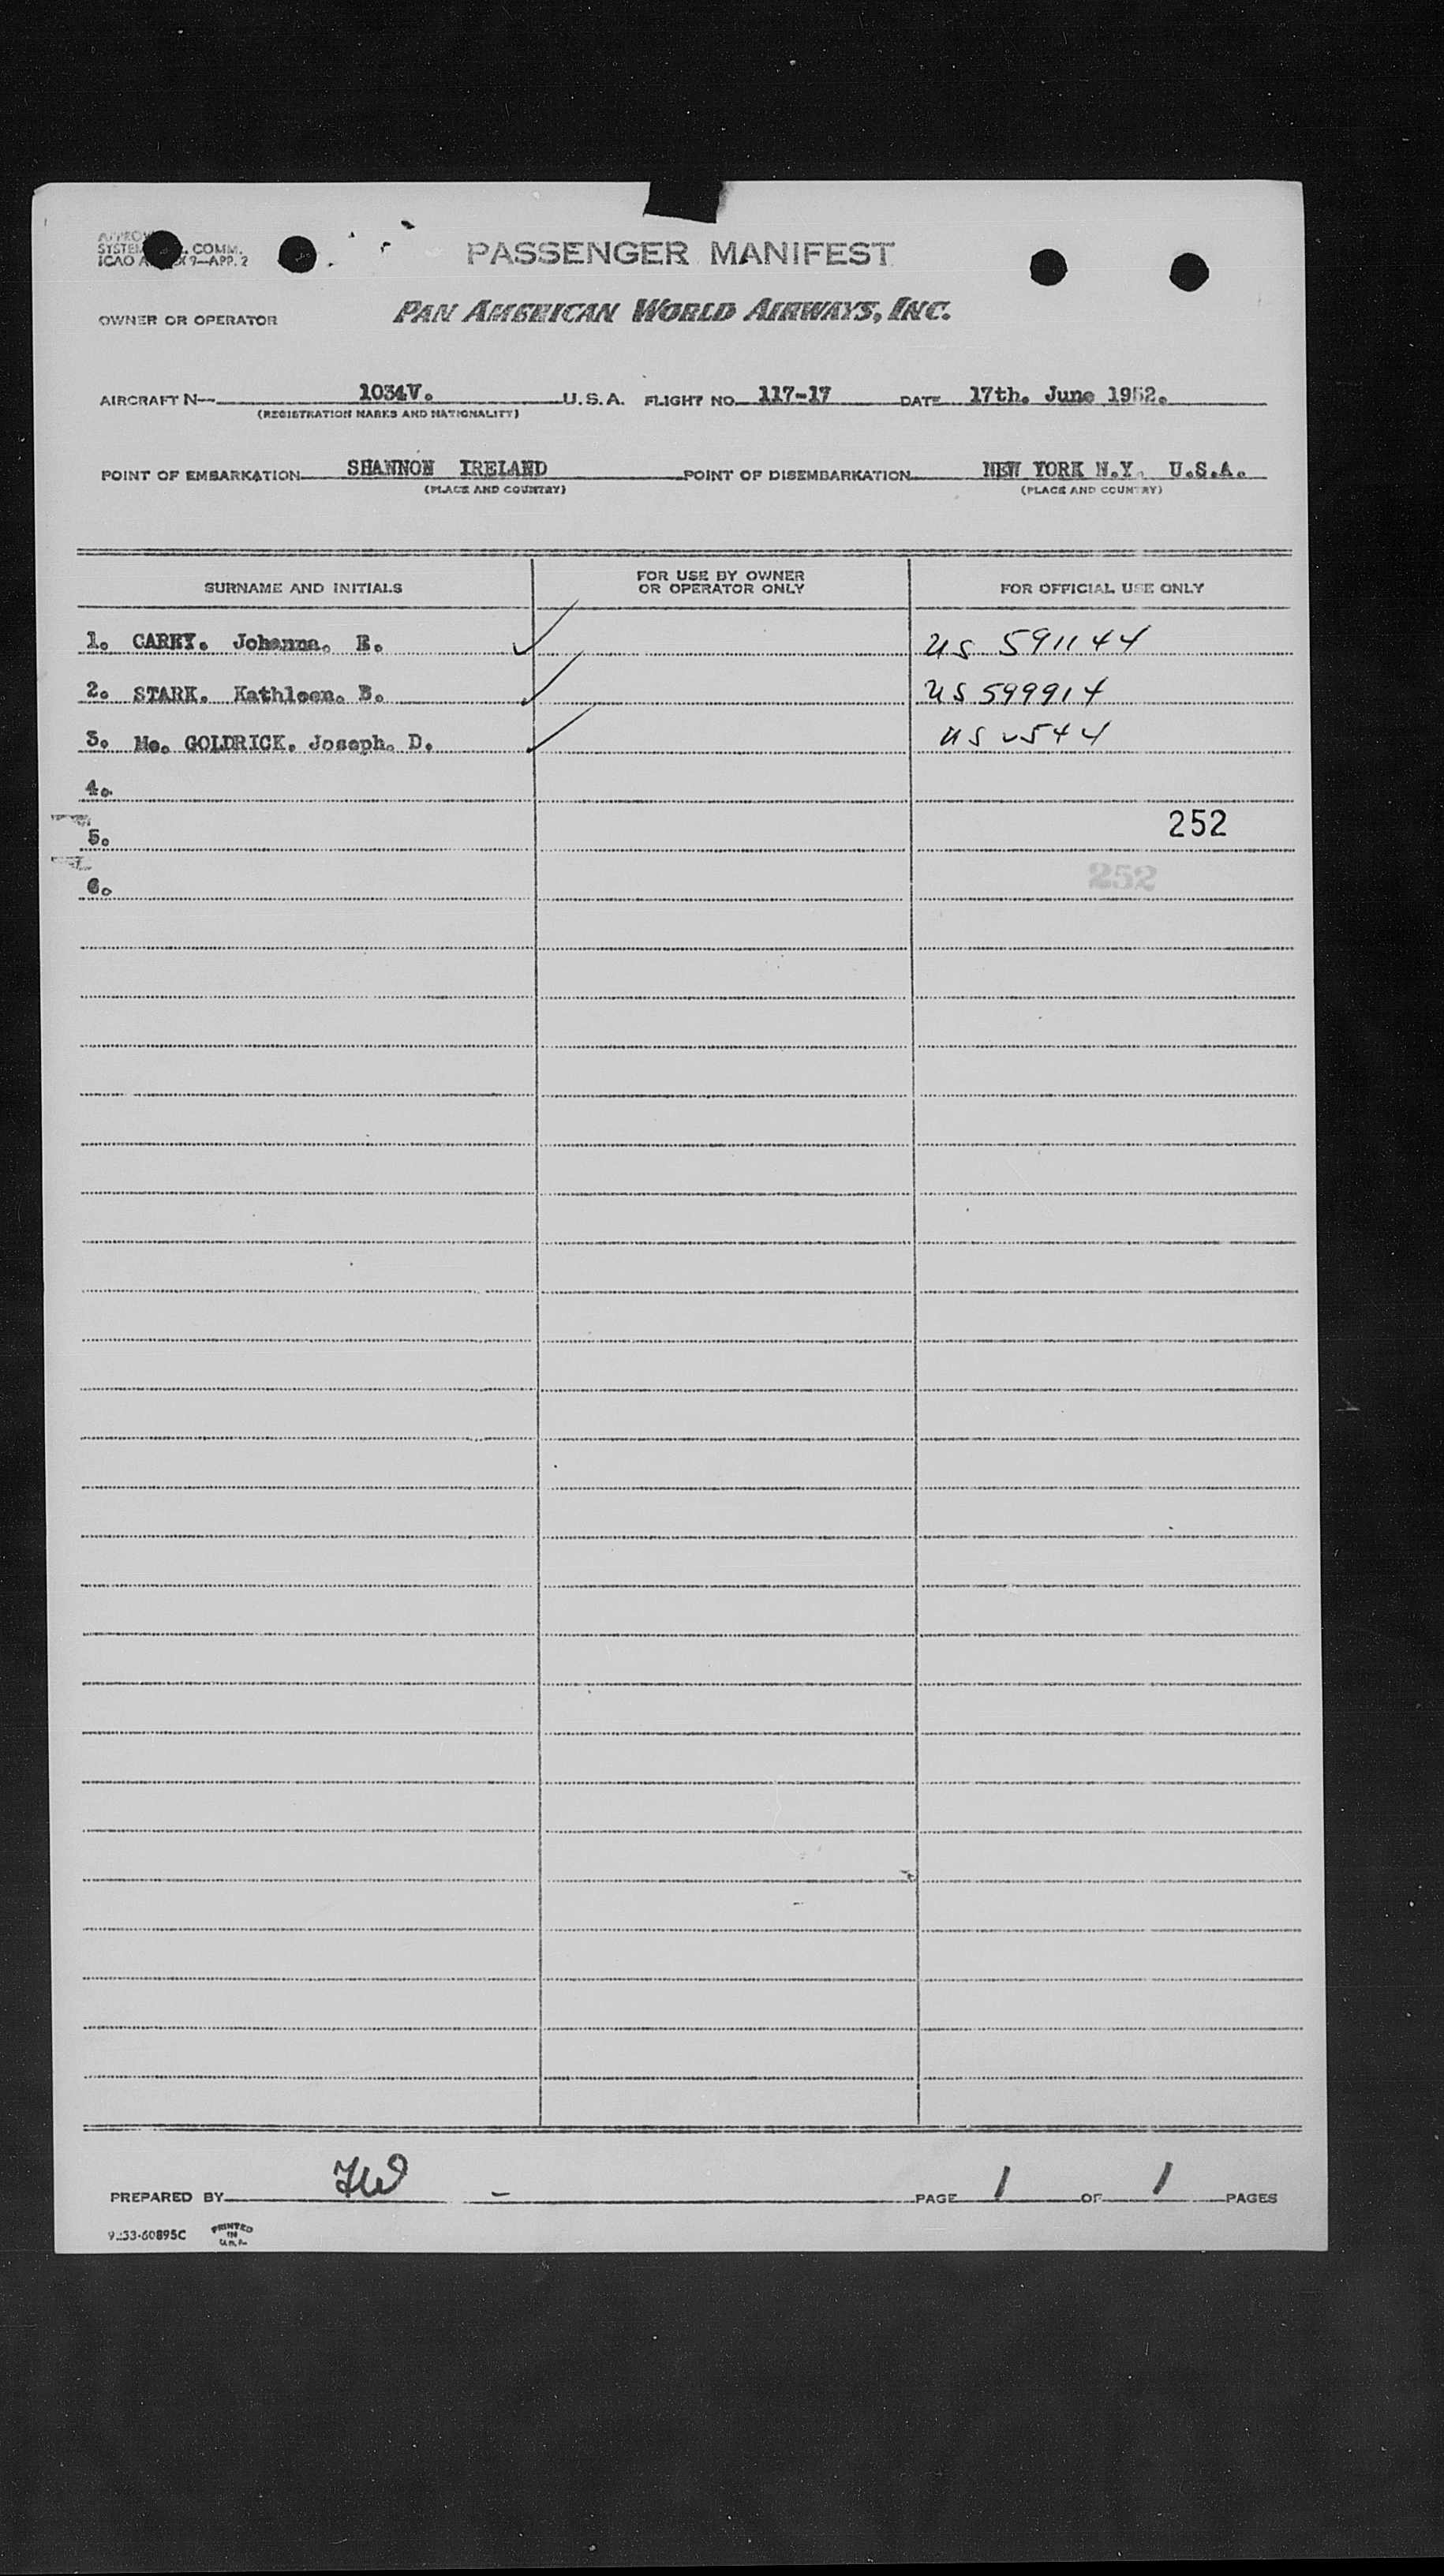 SYSTEM COMM.
ICAO 9—APP. 2
PASSENGER MANIFEST
PAN AMERICAN WORLD AIRWAYS, INC.
OWNER OR OPERATOR
AIRCRAFT N— 1034V. U.S.A. FLIGHT NO. 117-17 DATE 17th. June 1952.
(REGISTRATION MARKS AND NATIONALITY)
POINT OF EMBARKATION SHANNON IRELAND POINT OF DISEMBARKATION NEW YORK N.Y. U.S.A.
(PLACE AND COUNTRY) (PLACE AND COUNTRY)
SURNAME AND INITIALS FOR USE BY OWNER OR OPERATOR ONLY FOR OFFICIAL USE ONLY
1. CAREY. Johanna. E. US 591144
2. STARK. Kathleen. B. US 599914
3. Mc. GOLDRICK. Joseph. D. US
4.
5. 252
6. 252
PREPARED BY PAGE 1 OF 1 PAGES
PRINTED IN U.S.A.